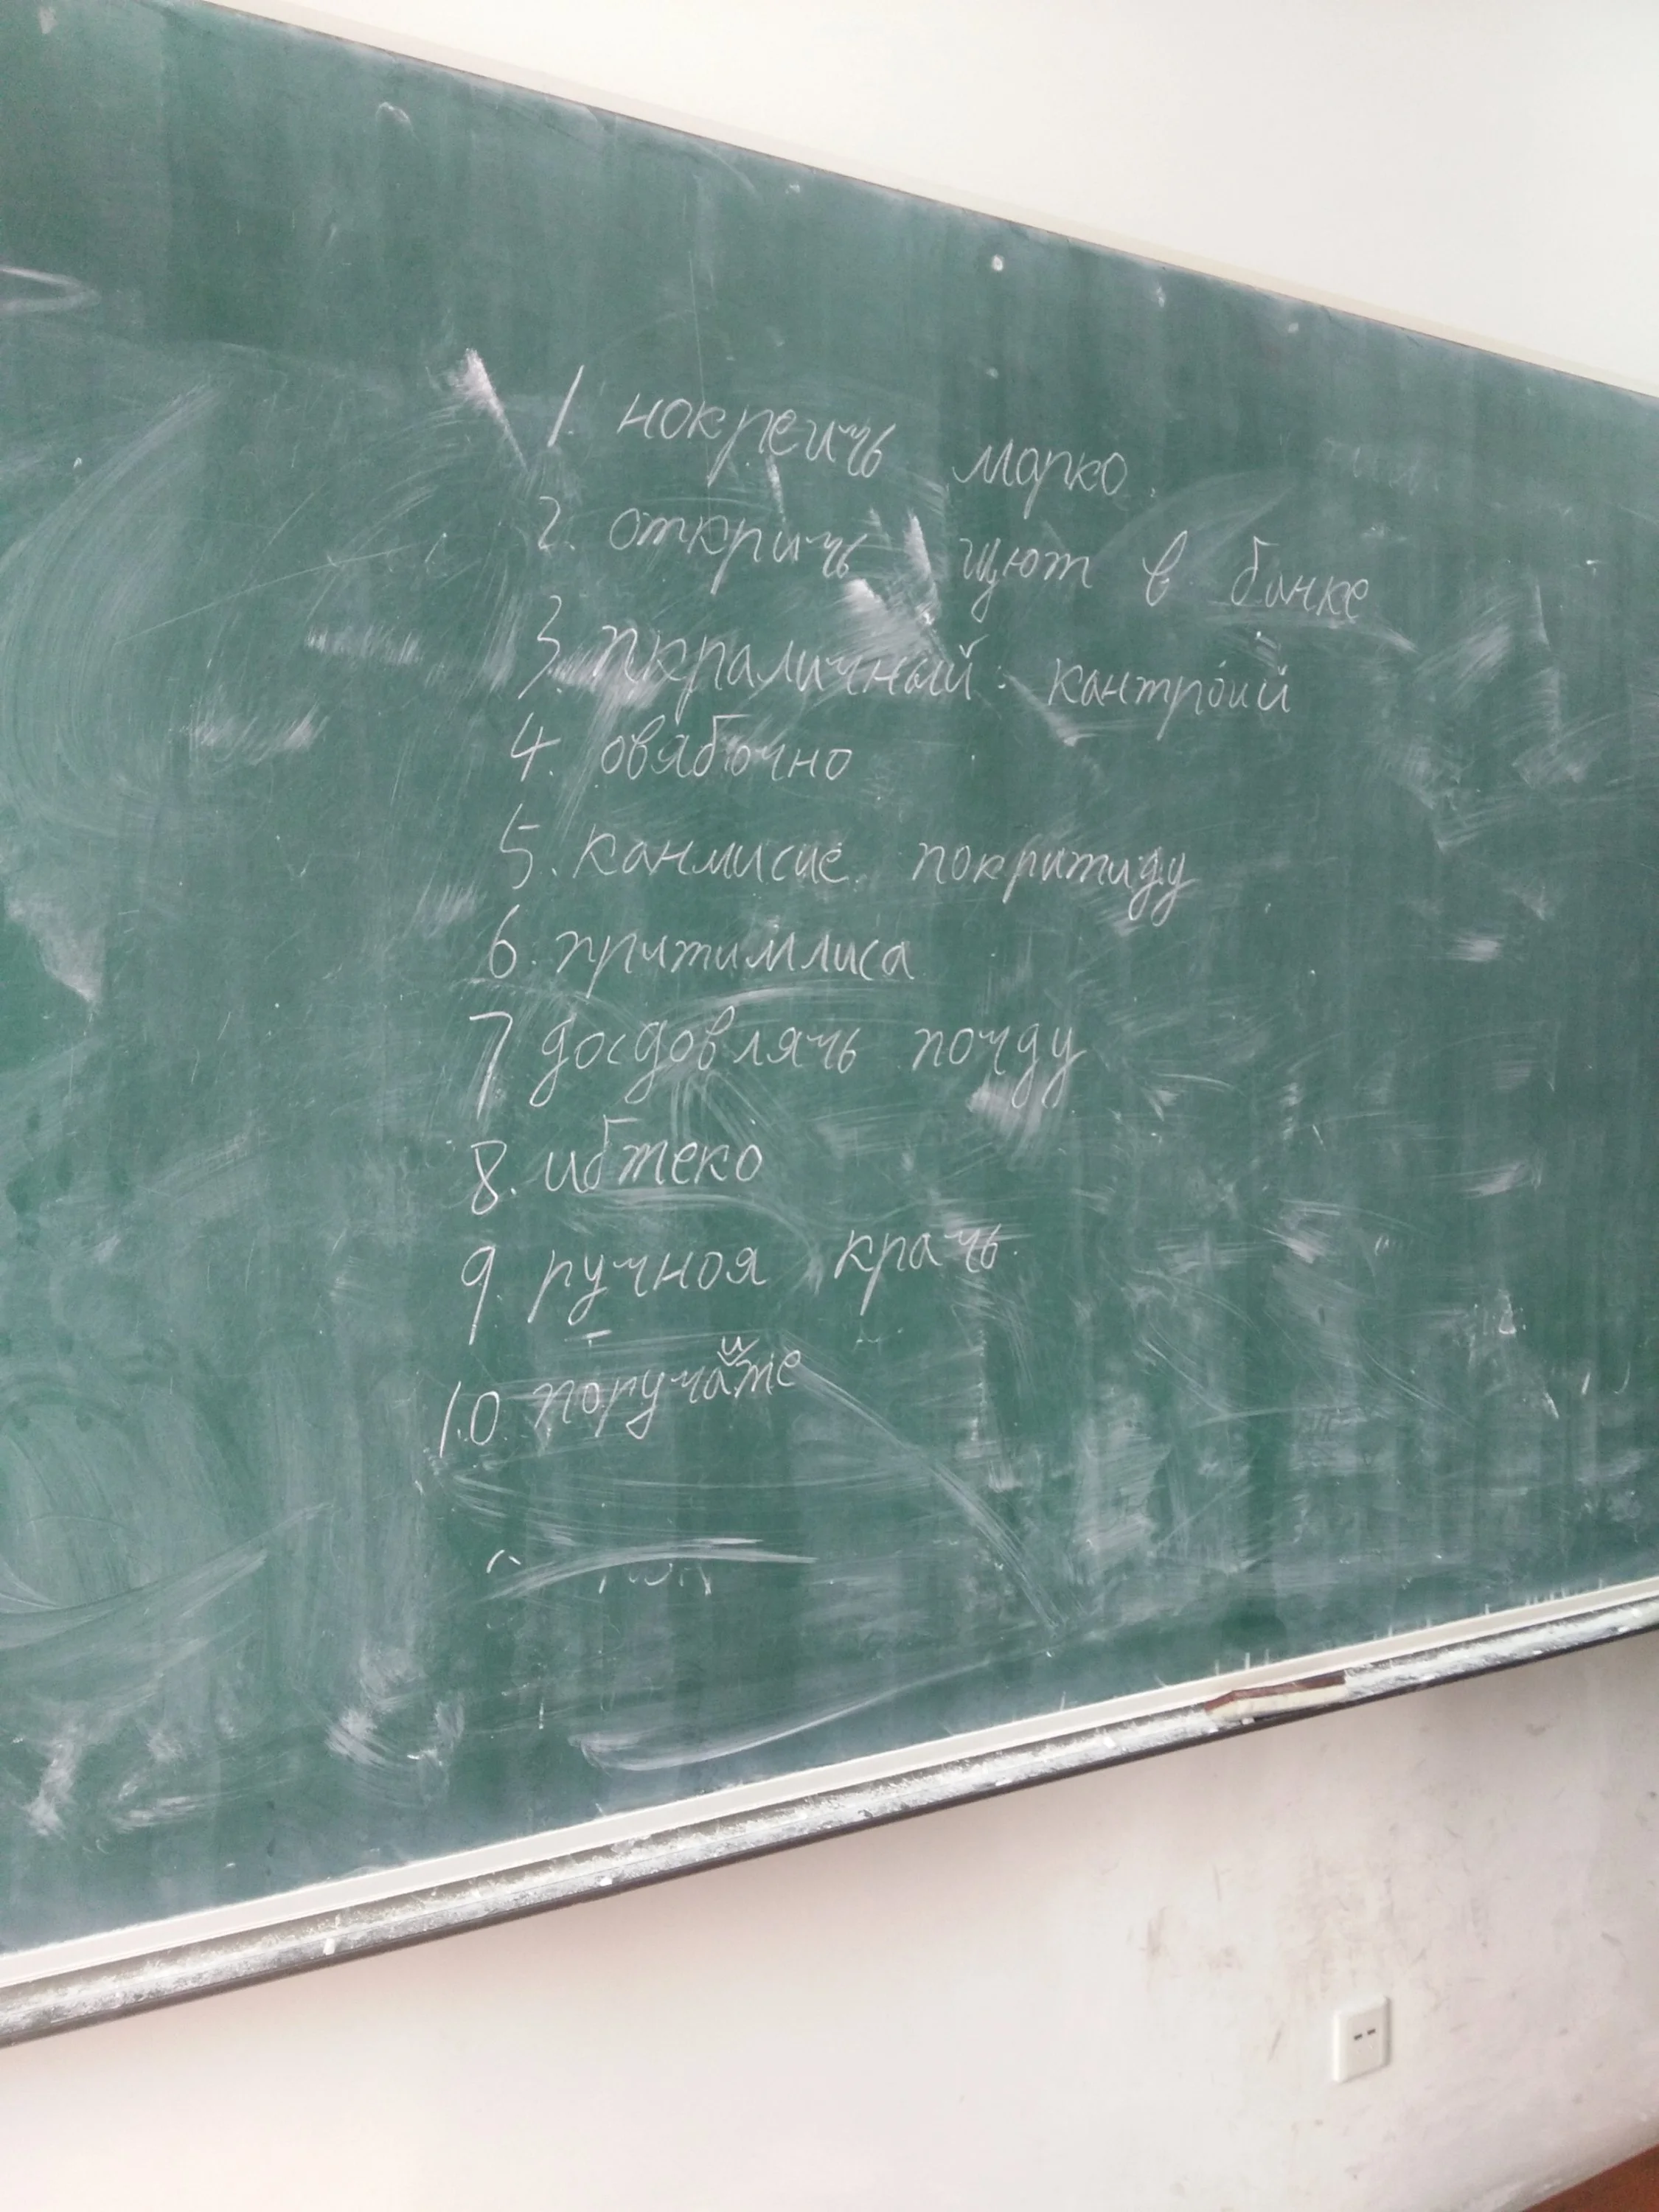 1. нокреичь морко.
2. откричь щют в банке
3. пкраличный. кантройй
4. овябочно
5. канмисие покритиду
6. притимлиса
7 досдовлячь почду
8. ибтеко
9. ручноя крачь.
10. поручайте